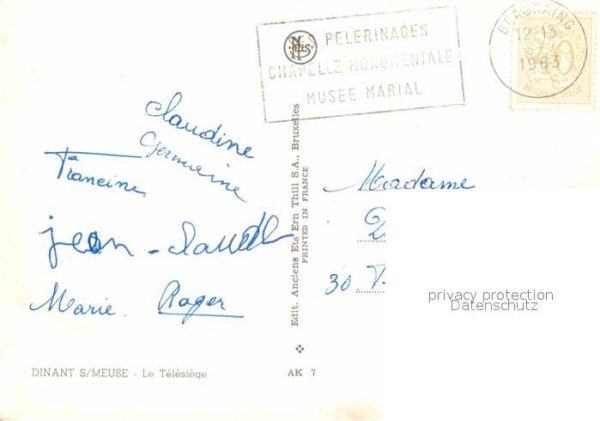 PELERINAGES
CHAPELLE MONUMENTALE
MUSEE MARIAL
BEAURAING
12-13
1963
claudine
Germaine
Francine
jean-claude
Marie. Roger
Edit. Anciens Ets Ern Thill S.A., Bruxelles
PRINTED IN FRANCE
Madame
30
privacy protection
Datenschutz
DINANT S/MEUSE - Le Télésiège
AK 7